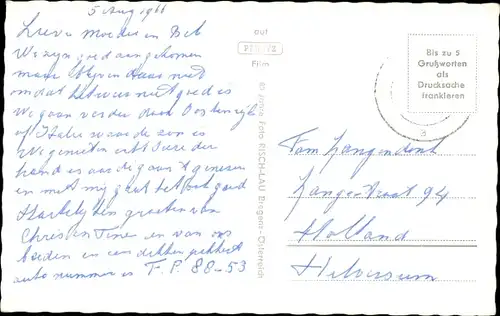 5 Aug 1966
Lieve Moeder en Bob
We zijn goed aangekomen
maar blijven daar niet
omdat het weer niet goed is
We gaan verder door Oostenrijk
of Italie waar de zon is
We genieten erbij
hand is aardig aan't genezen
en met mij gaat het ook goed
Hartelijke groeten van
Chris en Tiner en van ons
beiden en een dikke pakkert
auto nummer is F.P. 88-53
auf
Film
© Foto RISCH-LAU Bregenz-Österreich
Bis zu 5
Grußworten
als
Drucksache
frankieren
a
Fam Langendonk
Lange straat 94
Holland
Hilversum